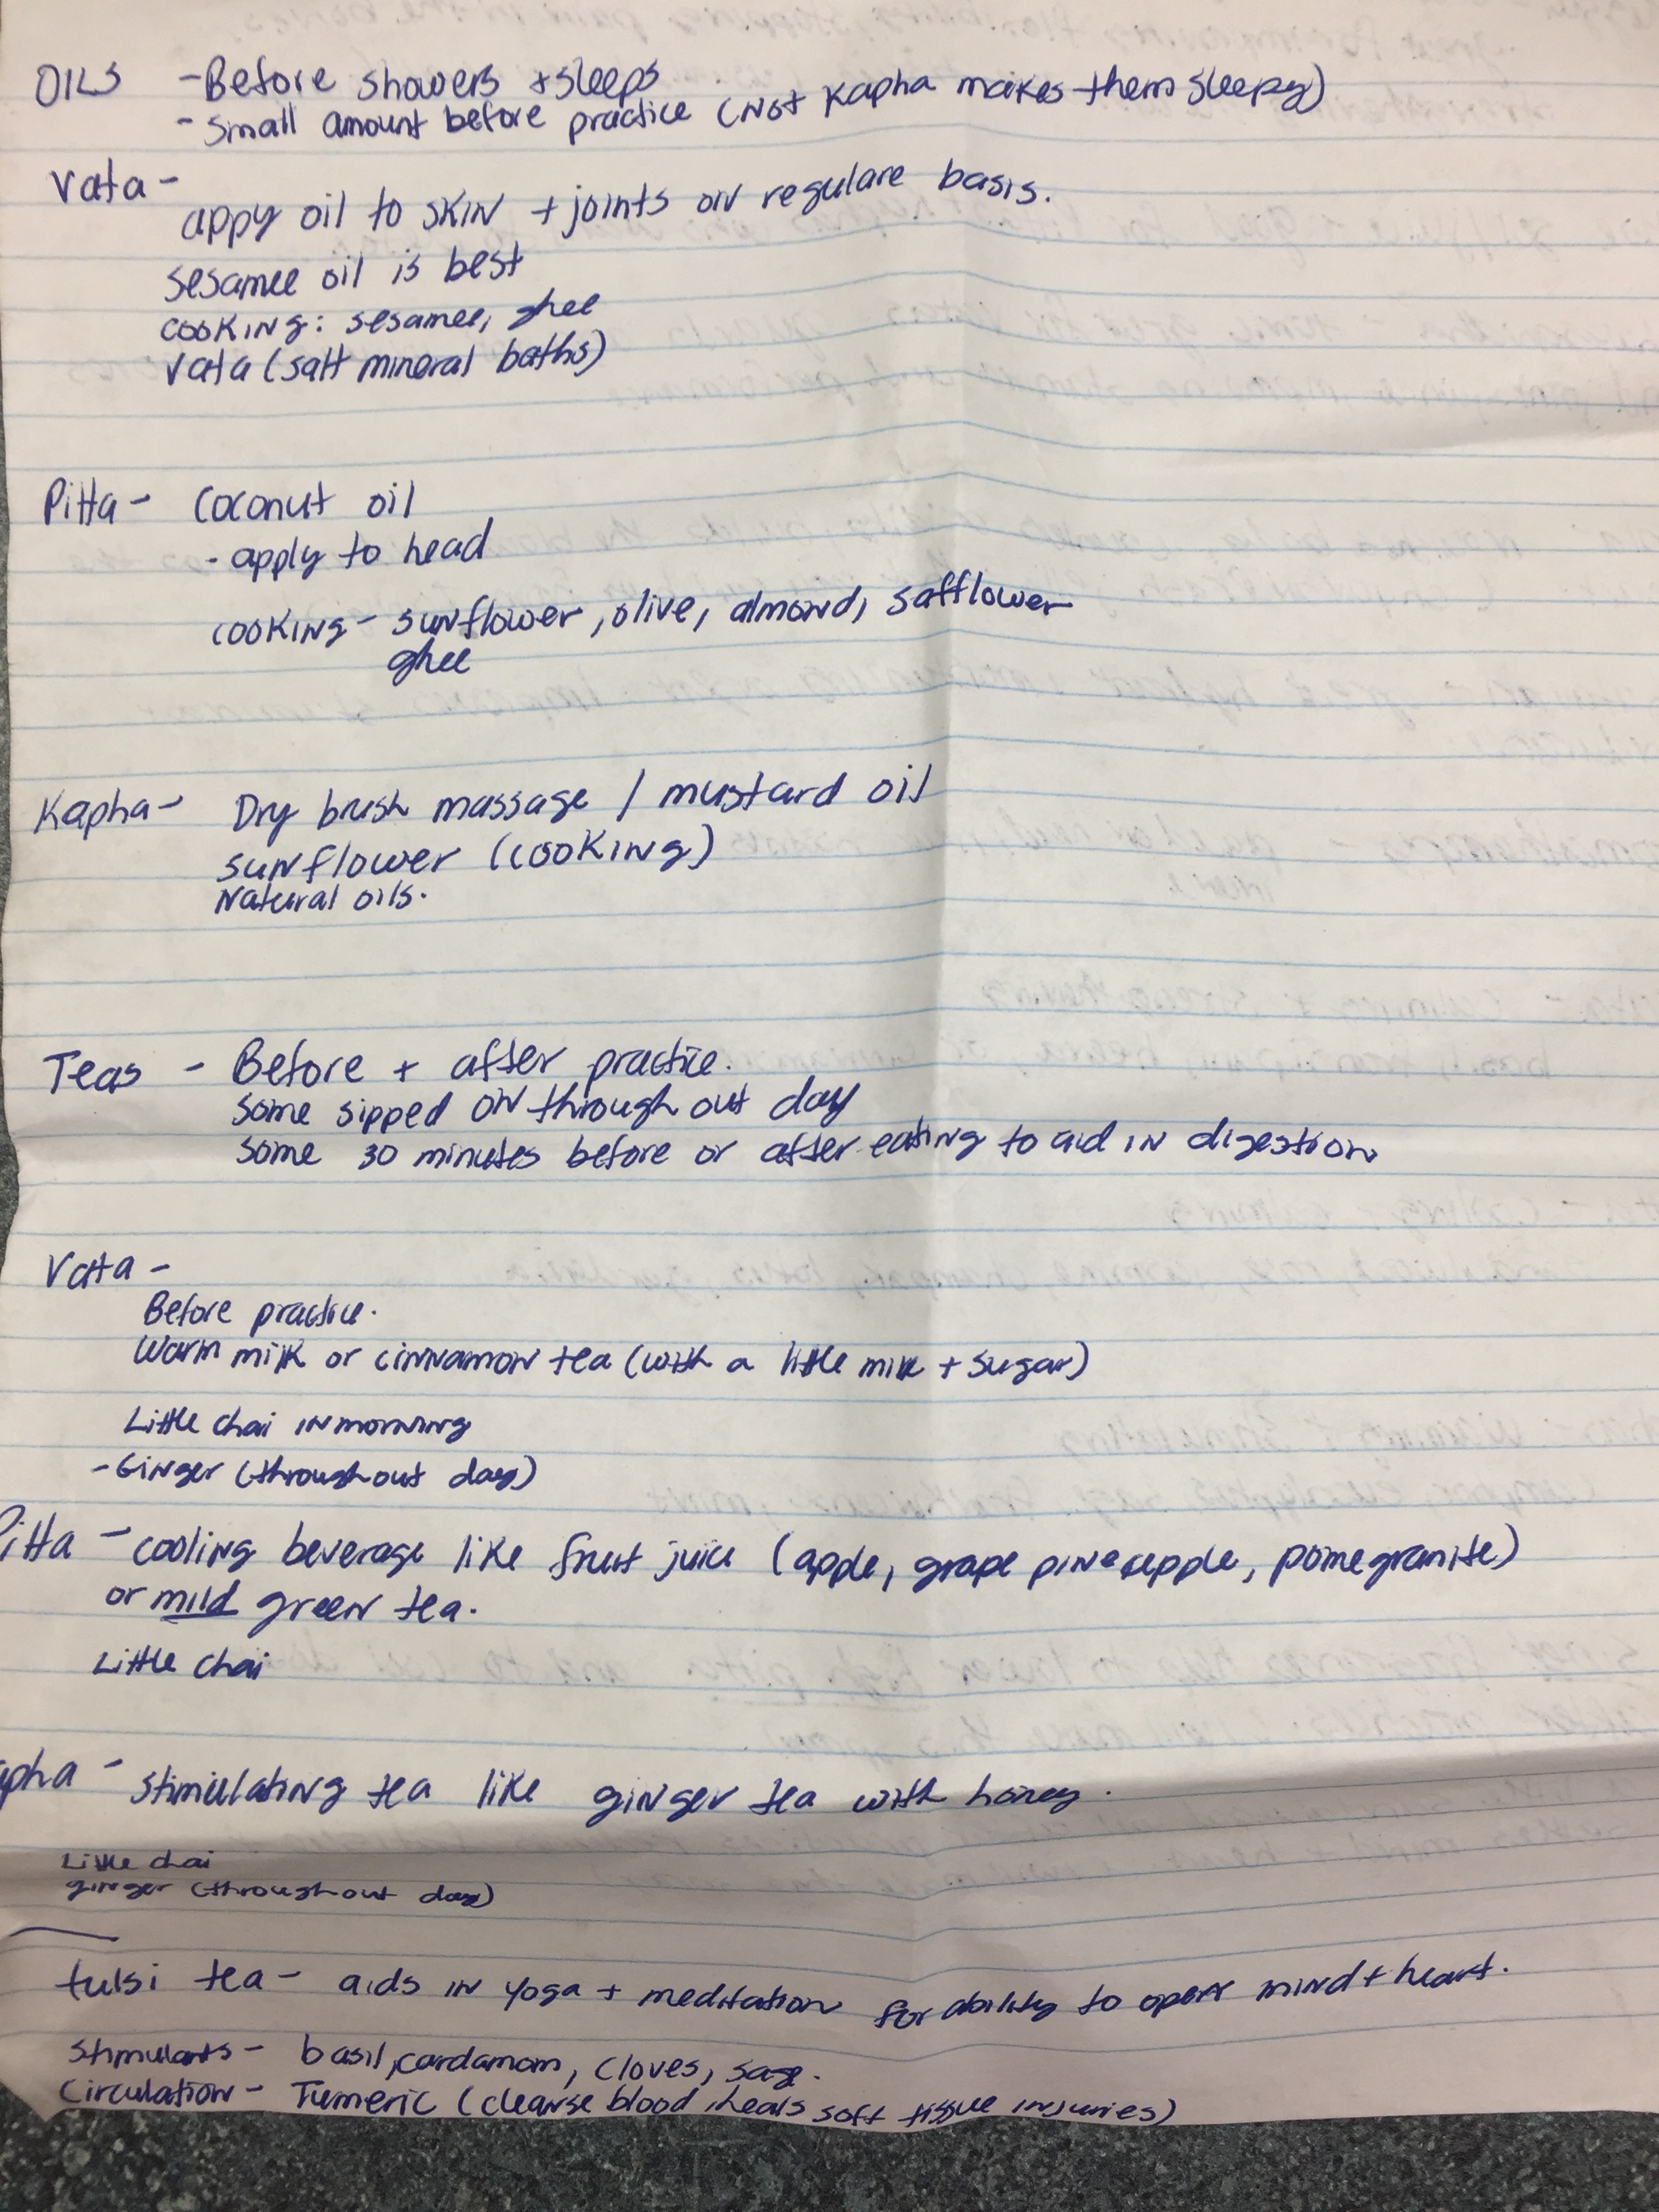 OILS - Before showers + sleeps
- small amount before practice (Not Kapha makes them sleepy)
Vata -
appy oil to skin + joints on regulare basis.
sesamee oil is best
cooking: sesamee, ghee
Vata (salt mineral baths)
Pitta - Coconut oil
- apply to head
cooking - sunflower, olive, almond, safflower
ghee
Kapha - Dry brush massage / mustard oil
sunflower (cooking)
Natural oils.
Teas - Before + after practice.
Some sipped on through out day
Some 30 minutes before or after eating to aid in digestion
Vata -
Before practice.
Warm milk or cinnamon tea (with a little milk + sugar)
Little chai in morning
- Ginger (throughout day)
Pitta - cooling beverage like fruit juice (apple, grape pineapple, pomegranite)
or mild green tea.
Little chai
apha - stimulating tea like ginger tea with honey.
Little chai
ginger (throughout day)
tulsi tea - aids in yoga + meditation for ability to open mind + heart.
Stimulants - basil, cardamom, cloves, sage.
Circulation - Tumeric (cleanse blood, heals soft tissue injuries)